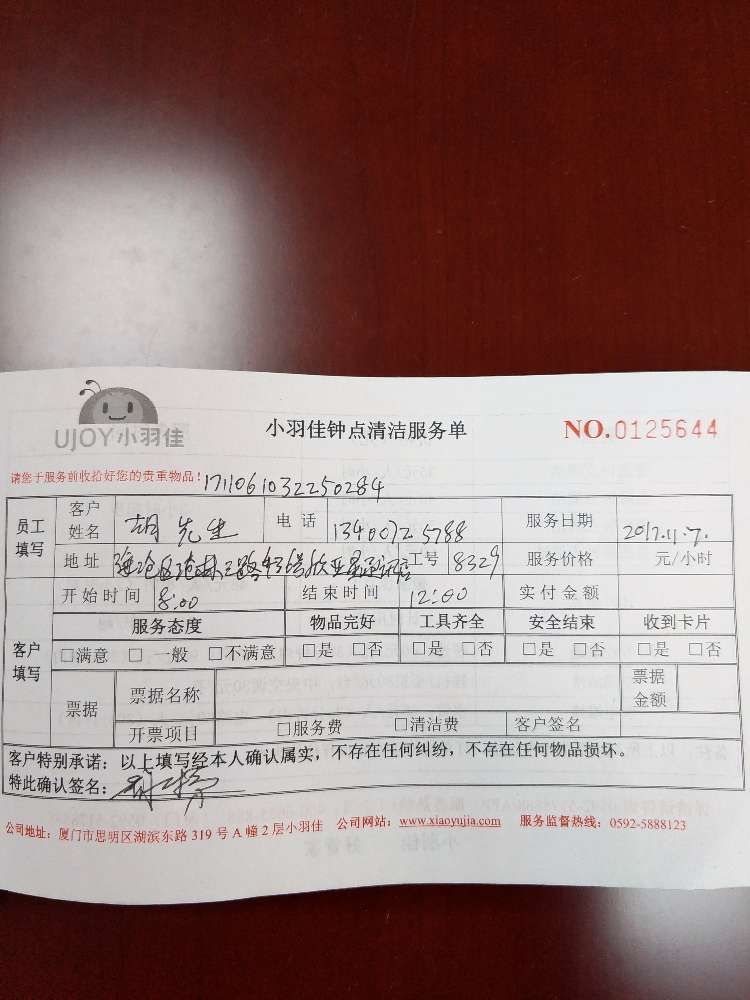 UJOY小羽佳
小羽佳钟点清洁服务单
NO.0125644
请您于服务前收拾好您的贵重物品！1711061032250284
员工填写 客户姓名 胡先生 电话 13400725788 服务日期 2017.11.7.
地址 海沧区沧林三路 工号 8329 服务价格 元/小时
客户填写 开始时间 8:00 结束时间 12:00 实付金额
服务态度 物品完好 工具齐全 安全结束 收到卡片
□满意 □一般 □不满意 □是 □否 □是 □否 □是 □否 □是 □否
票据 票据名称 票据金额
开票项目 □服务费 □清洁费 客户签名
客户特别承诺：以上填写经本人确认属实，不存在任何纠纷，不存在任何物品损坏。
特此确认签名：
公司地址：厦门市思明区湖滨东路 319 号 A 幢 2 层小羽佳 公司网站：www.xiaoyujia.com 服务监督热线：0592-5888123